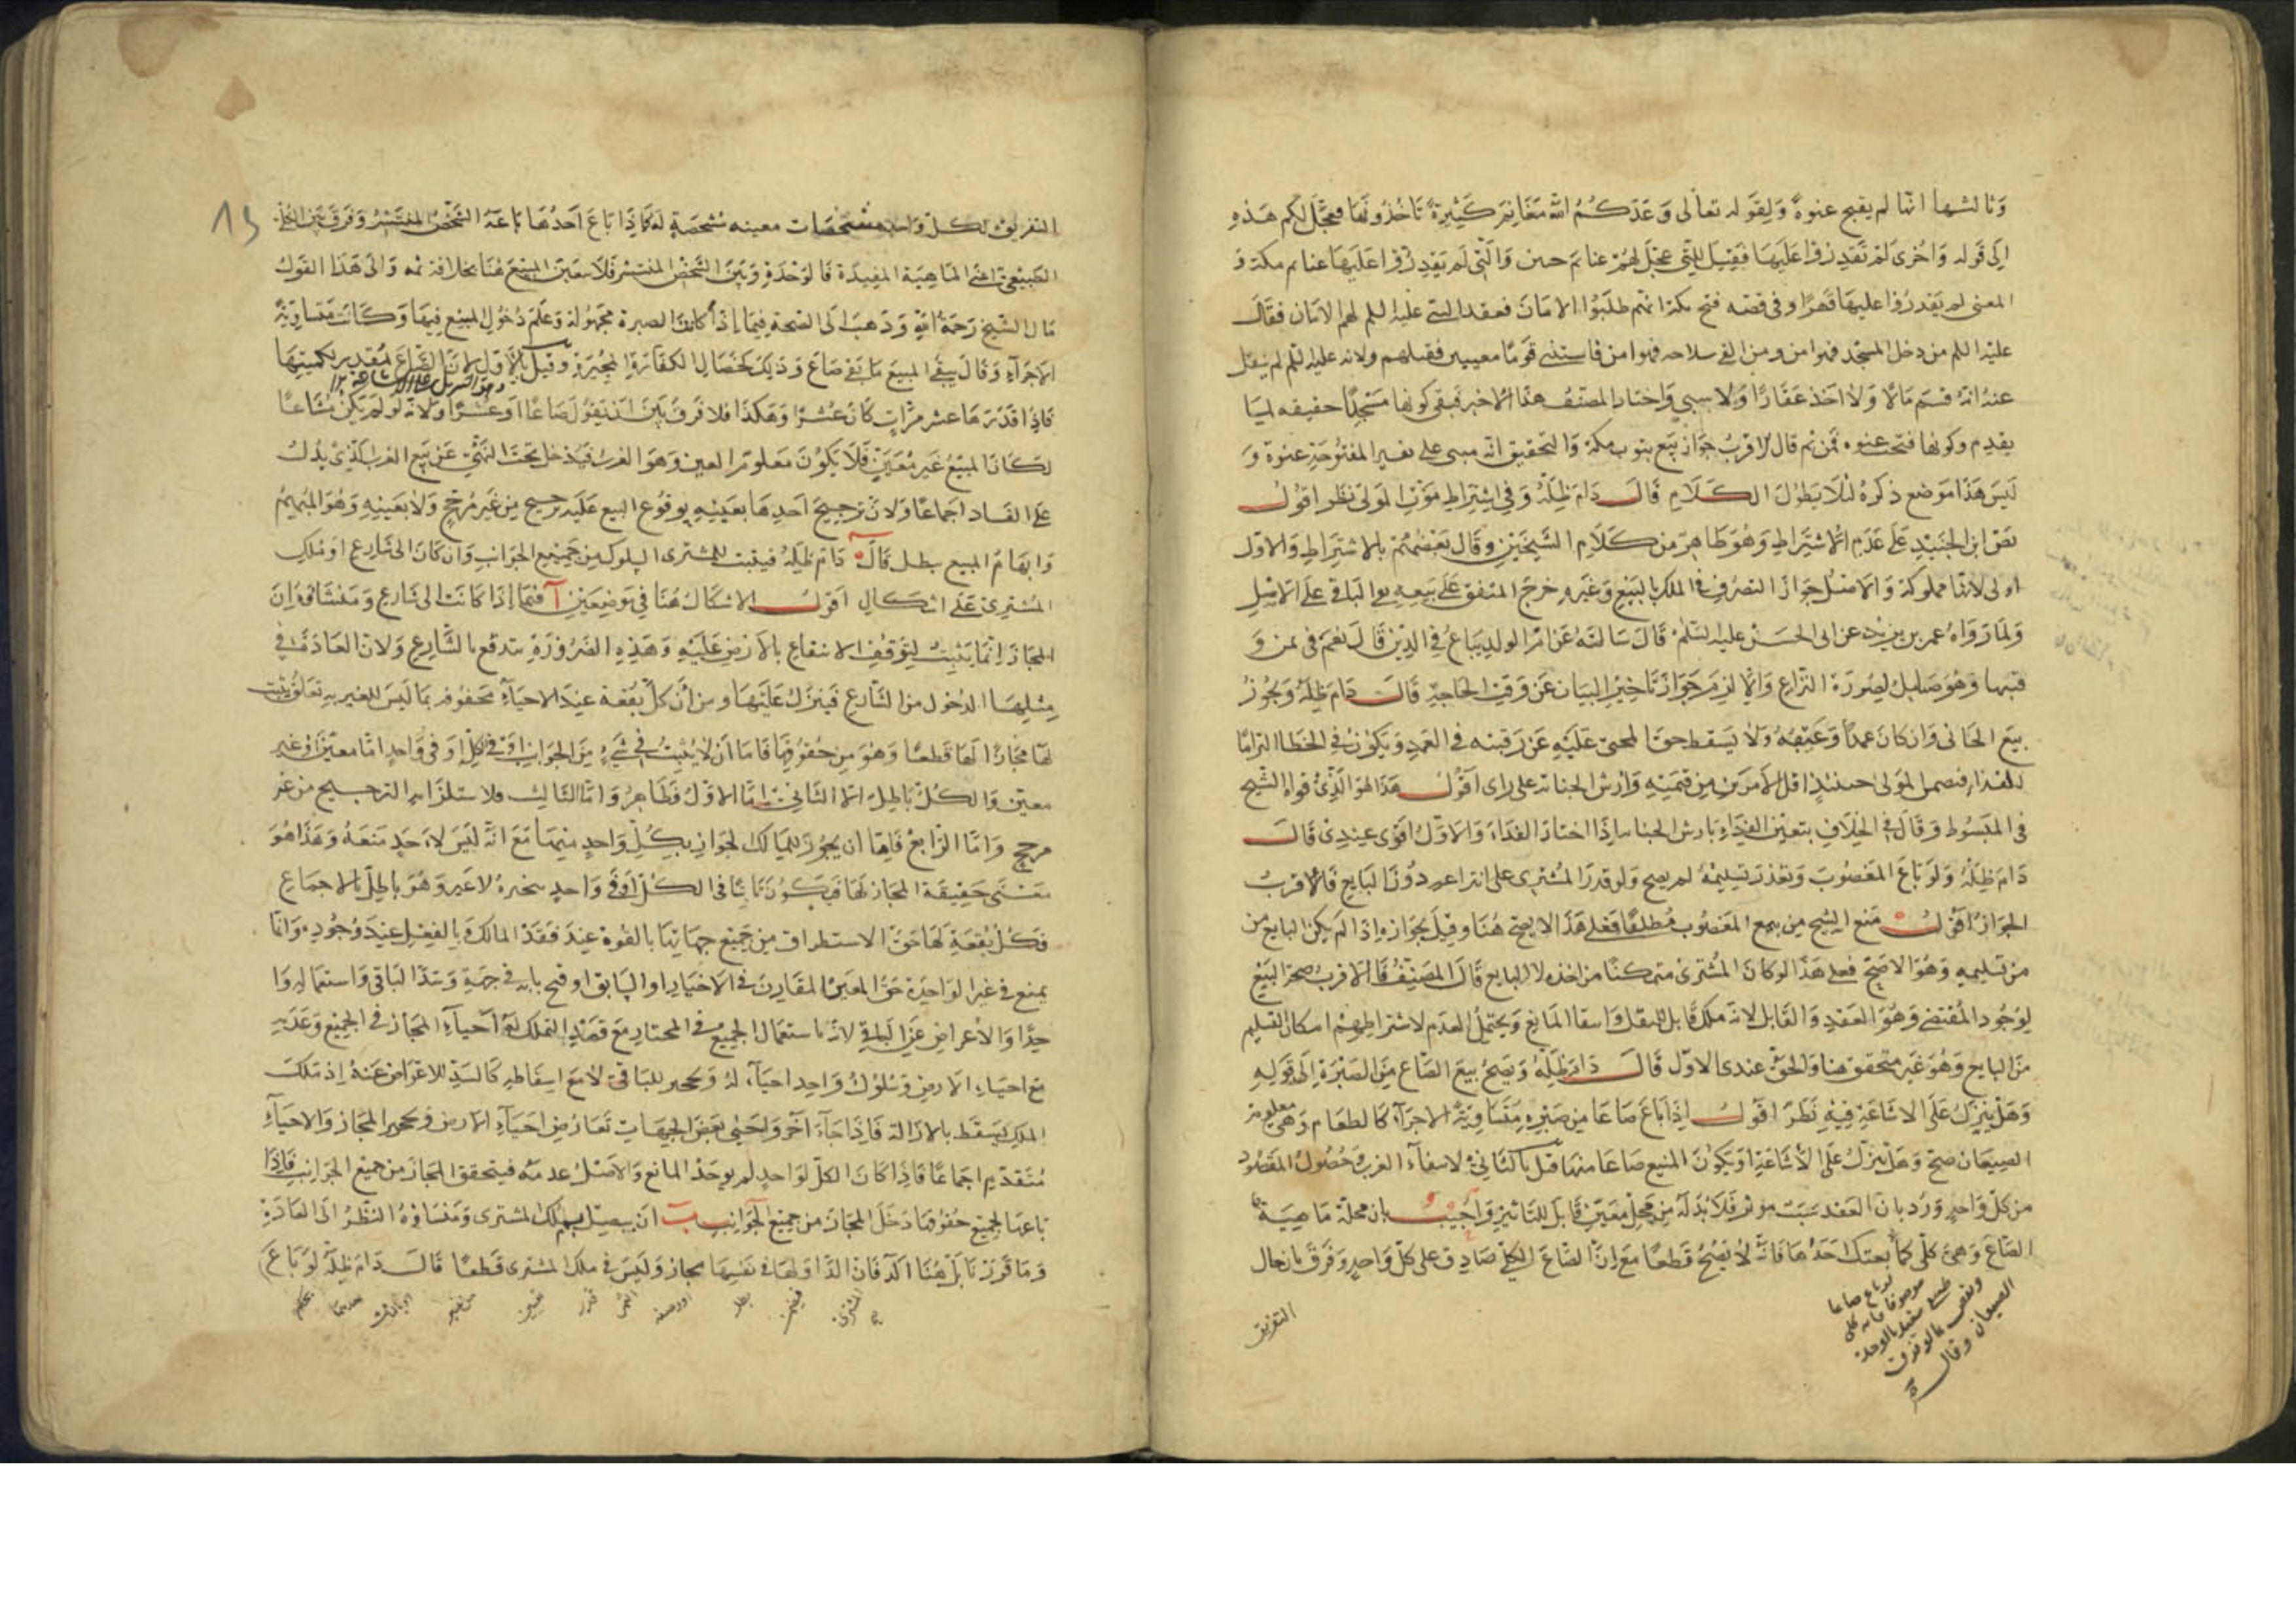 وثالثها انها لم يفتح عنوة ولقوله تعالى وعدكم الله مغانم كثيرة تاخذونها فعجل لكم هذه
الى قوله واخرى لم تقدروا عليها فقيل التي عجل لهم غنائم حنين والتي لم يقدروا عليها غنائم مكة و
المعنى لم يقدروا عليها قهرا وفي قصة فتح مكة انهم طلبوا الامان فعقد النبي عليه السلم لهم الامان فقال
عليه السلم من دخل المسجد فهو امن ومن القى سلاحه فهو امن فاستثنى قوما معينين فقتلهم ولانه عليه السلم لم ينقل
عنه انه قسم مالا ولا اخذ عقارا ولا سبي واختار المصنف هذا الاخير فبقى كونها مسجدا حقيقه لما
يقدم وكونها فتحت عنوه فمن ثم قال الاقرب جواز بيع بيوت مكة والتحقيق انه مبنى على تفسير المفتوحة عنوة و
ليس هذا موضع ذكره لئلا يطول الكلام قال دام ظله وفي اشتراط موت المولى نظر اقول
نص ابن الجنيد على عدم الاشتراط وهو ظاهر من كلام الشيخين وقال بعضهم بالاشتراط والاول
اولى لانها مملوكة والاصل جواز التصرف في الملك بالبيع وغيره خرج المتفق على بيعه بقى الباقي على الاصل
ولما رواه عمر بن يزيد عن ابى الحسن عليه السلم قال سالته عن ام الولد يباع في الدين قال نعم في ثمن و
قبتها وهو صابل لصورة النزاع والا لزم جواز تاخير البيان عن وقت الحاجة قال دام ظله ويجوز
بيع الجانى وان كان عمدا وعتقه ولا يسقط حق المجنى عليه عن رقبته في العمد ويكون في الخطا التزاما
للفداء فيضمن المولى حينئذ اقل الامرين من قيمته وارش الجناية على راى اقول هذا هو الذي قواه الشيخ
في المبسوط وقال في الخلاف بتعين الفداء بارش الجناية اذا اختار الفداء والاول اقوى عندي قال
دام ظله ولو باع المغصوب وتعذر تسليمه لم يصح ولو قدر المشترى على انتزاعه دون البايع فالاقرب
الجواز اقول منع الشيخ من بيع المغصوب مطلقا فعلى هذا لا يصح هنا وقيل بجوازه اذا لم يكن البايع من
من تسليمه وهو الاصح فعلى هذا لو كان المشترى متمكنا من اخذه لا البايع قال المصنف الاقرب صحة البيع
لوجود المقتضى وهو العقد والقابل لانه ملك قابل للنقل وانتفا المانع ويحتمل العدم لاشتراطهم امكان التسليم
من البايع وهو غير متحقق هنا والحق عندى الاول قال دام ظله ويصح بيع الصاع من الصبرة الى قوله
وهل ينزل على الاشاعة فيه نظر اقول اذا باع صاعا من صبرة متساوية الاجزاء كالطعام وهى معلومة
الصيعان صح وهل ينزل على الاشاعة او يكون المبيع صاعا منها قيل بالثانى لانتفاء الغرر وحصول المقصود
من كل واحد ورد بان العقد سبب موثر فلا بد له من محل معين قابل للتاثير واجيب بان محله ماهية
الصاع وهى كلى كما بعتك احدها فانه لا يصح قطعا مع ان الصاع الكلى صادق على كل واحد وفرق بانحال
التفريق
التفريق لكل واحد مشخصات معينه مشخصة له كما اذا باع احدها باعه الشخص المنتشر وفرق بين الكلى
الطبيعى اعنى الماهية المقيدة فالوحدة وبين الشخص المنتشر فلا تعين المبيع هنا بخلافه ثمه والى هذا القول
مال الشيخ رحمه الله وذهب الى الصحة فيما اذا كانت الصبرة مجهولة وعلم دخول المبيع فيها وكانت متساوية
الاجزاء وقال يبقى المبيع ما بقى صاع وذلك كخصال الكفارة المخيرة وقيل بالاول لان الصاع مقدر لكميتها
فاذا قدرها عشر مرات كان عشرا وهكذا فلا فرق بين ان يقول صاعا او عشرا ولانه لو لم يكن مشاعا
لكان المبيع غير معين فلا يكون معلوم العين وهو الغرر فيدخل تحت النهى عن بيع الغرر الذى يدل
على الفساد اجماعا ولان ترجيح احدها بعينه بوقوع البيع عليه ترجيح من غير مرجح ولا بعينه وهو المبهم
وابهام المبيع يبطل قال دام ظله فيثبت للمشترى السلوك من جميع الجوانب وان كان الى شارع او ملك
المشترى على اشكال اقول الاشكال هنا في موضعين آ فيما اذا كانت الى شارع ومنشاؤه ان
المجاز انما يثبت لتوقف الانتفاع بالارض عليه وهذه الضرورة تندفع بالشارع ولان العادة في
مثلها الدخول من الشارع فينزل عليها ومن ان كل بقعة عند الاحياء محفوفة بما ليس للغير به تعلق يثبت
لها مجازا لها قطعا وهو من حقوقها فاما ان لا يثبت في شىء من الجوانب او في كل او في واحد اما معين او غير
معين والكل باطل الا الثاني اما الاول فظاهر واما الثالث فلاستلزامه الترجيح من غير
مرجح واما الرابع فلانها ان يجوز للمالك الجواز بكل واحد منهما مع انه ليس لاحد منعه وهذا هو
معنى حقيقة المجاز لها فيكون ثابتا في الكل او في واحد يتخيره لا غير وهو باطل بالاجماع
فكل بقعة لها حق الاستطراق من جميع جهاتها بالقوة عند فقد المالك وبالفعل عند وجوده وانما
يمنع في غير الواحدة حق المعين المقارن في الاختيار او السابق او فتح بابه في جهة وسد الباقي واستعماله وا
حدا والاعراض عن الباقي لان استعمال الجميع في المختار مع قصد التملك له احياء المجاز في الجميع وعدمه
مع احياء الارض وسلوك واحد احياء له وتحجير للباقى لا مع اسقاطه كالسد للاعراض عنه اذ ملك
الملك يسقط بالازالة فاذا جاء اخر واحيى بعض الجهات تعارض احياء الارض وتحجير المجاز والاحياء
متقدم اجماعا فاذا كان الكل لواحد لم يوجد المانع والاصل عدمه فيتحقق المجاز من جميع الجوانب فاذا
باعها بجميع حقوقها دخل المجاز من جميع الجوانب ب ان يتصل بملك المشترى ومنشاؤه النظر الى العادة
وما قررنا بل هنا اكد فان الدار لها في نفسها مجاز وليس في ملك المشترى قطعا قال دام ظله لو باع